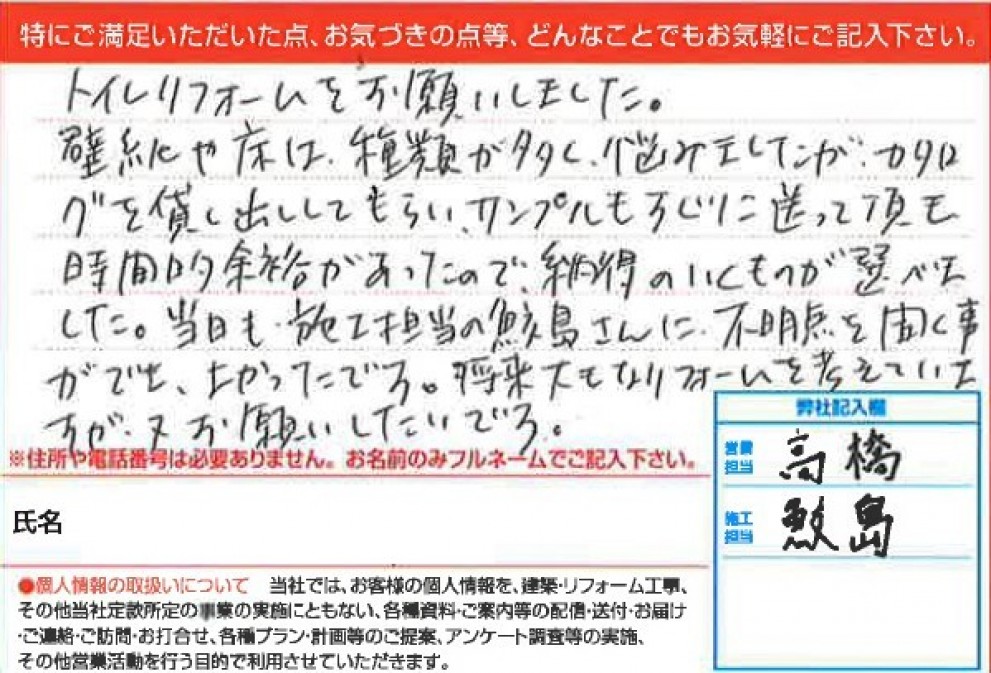 特にご満足いただいた点、お気づきの点等、どんなことでもお気軽にご記入下さい。
トイレリフォームをお願いしました。
壁紙や床は、種類が多く、悩みましたが、カタロ
グを貸し出ししてもらい、サンプルもすぐに送って頂き
時間的余裕があったので、納得のいくものが選べま
した。当日も、施工担当の鮫島さんに、不明点を聞く事
ができ、よかったです。将来大きなリフォームを考えていま
すが、又お願いしたいです。
※住所や電話番号は必要ありません。お名前のみフルネームでご記入下さい。
弊社記入欄
営業担当 高橋
施工担当 鮫島
氏名
●個人情報の取扱いについて 当社では、お客様の個人情報を、建築・リフォーム工事、
その他当社定款所定の事業の実施にともない、各種資料・ご案内等の配信・送付・お届け
・ご連絡・ご訪問・お打合せ、各種プラン・計画等のご提案、アンケート調査等の実施、
その他営業活動を行う目的で利用させていただきます。